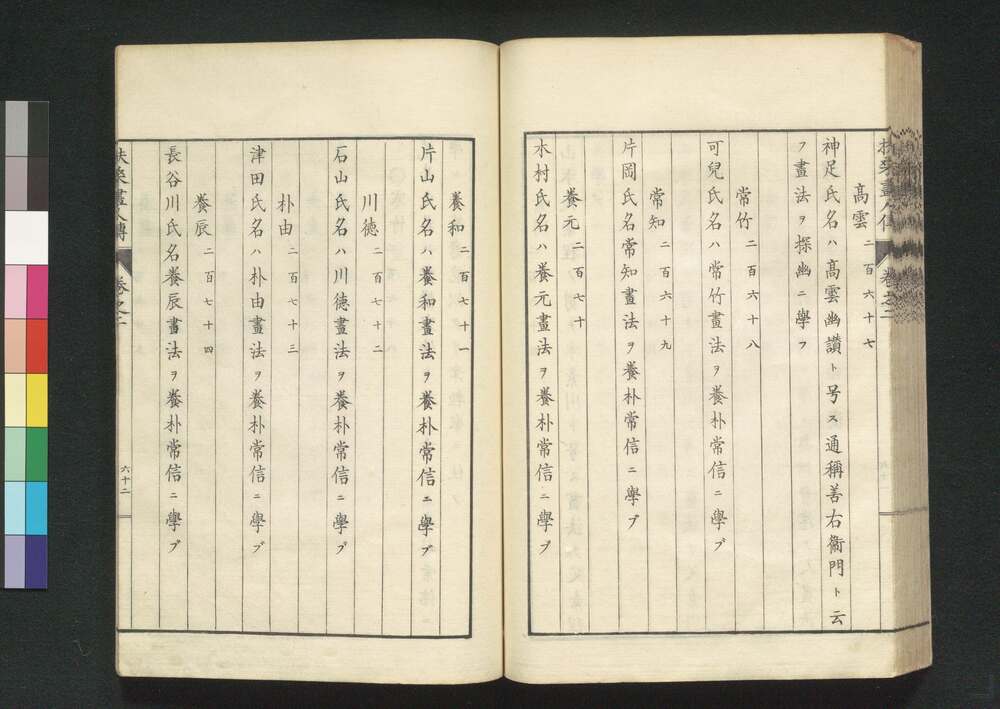 扶桑畫人傳 卷之二
高雲 二百六十七
神足氏名ハ高雲幽讃ト号ス通稱善右衞門ト云
フ畫法ヲ探幽ニ學フ
常竹 二百六十八
可兒氏名ハ常竹畫法ヲ養朴常信ニ學ブ
常知 二百六十九
片岡氏名常知畫法ヲ養朴常信ニ學ブ
養元 二百七十
木村氏名ハ養元畫法ヲ養朴常信ニ學ブ
養和 二百七十一
片山氏名ハ養和畫法ヲ養朴常信ニ學ブ
川德 二百七十二
石山氏名ハ川德畫法ヲ養朴常信ニ學ブ
朴由 二百七十三
津田氏名ハ朴由畫法ヲ養朴常信ニ學ブ
養辰 二百七十四
長谷川氏名養辰畫法ヲ養朴常信ニ學ブ
扶桑畫人傳 卷之二 六十二